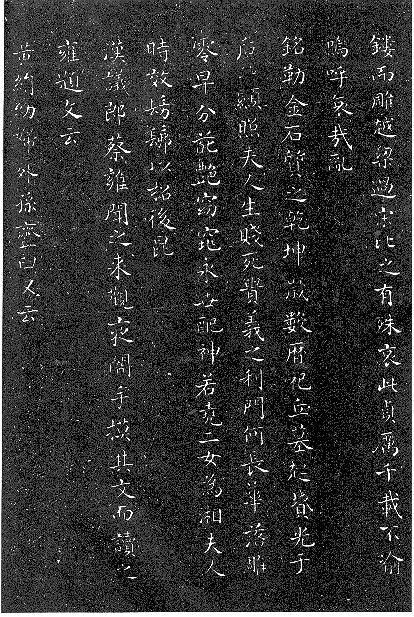 鏤而雕越梁過宋比之有殊哀此貞厲千載不渝
嗚呼哀哉亂
銘勒金石質之乾坤歲數曆祀丘墓起墳光于
后土顯照夫人生賤死貴義之利門何長華落雕
零早分葩艷窈窕永世配神若堯二女為相夫人
時效髣髴以招後昆
漢議郎蔡雍聞之來觀夜闇手摸其文而讀之
雍題文云
黃絹幼婦外孫齏臼又云